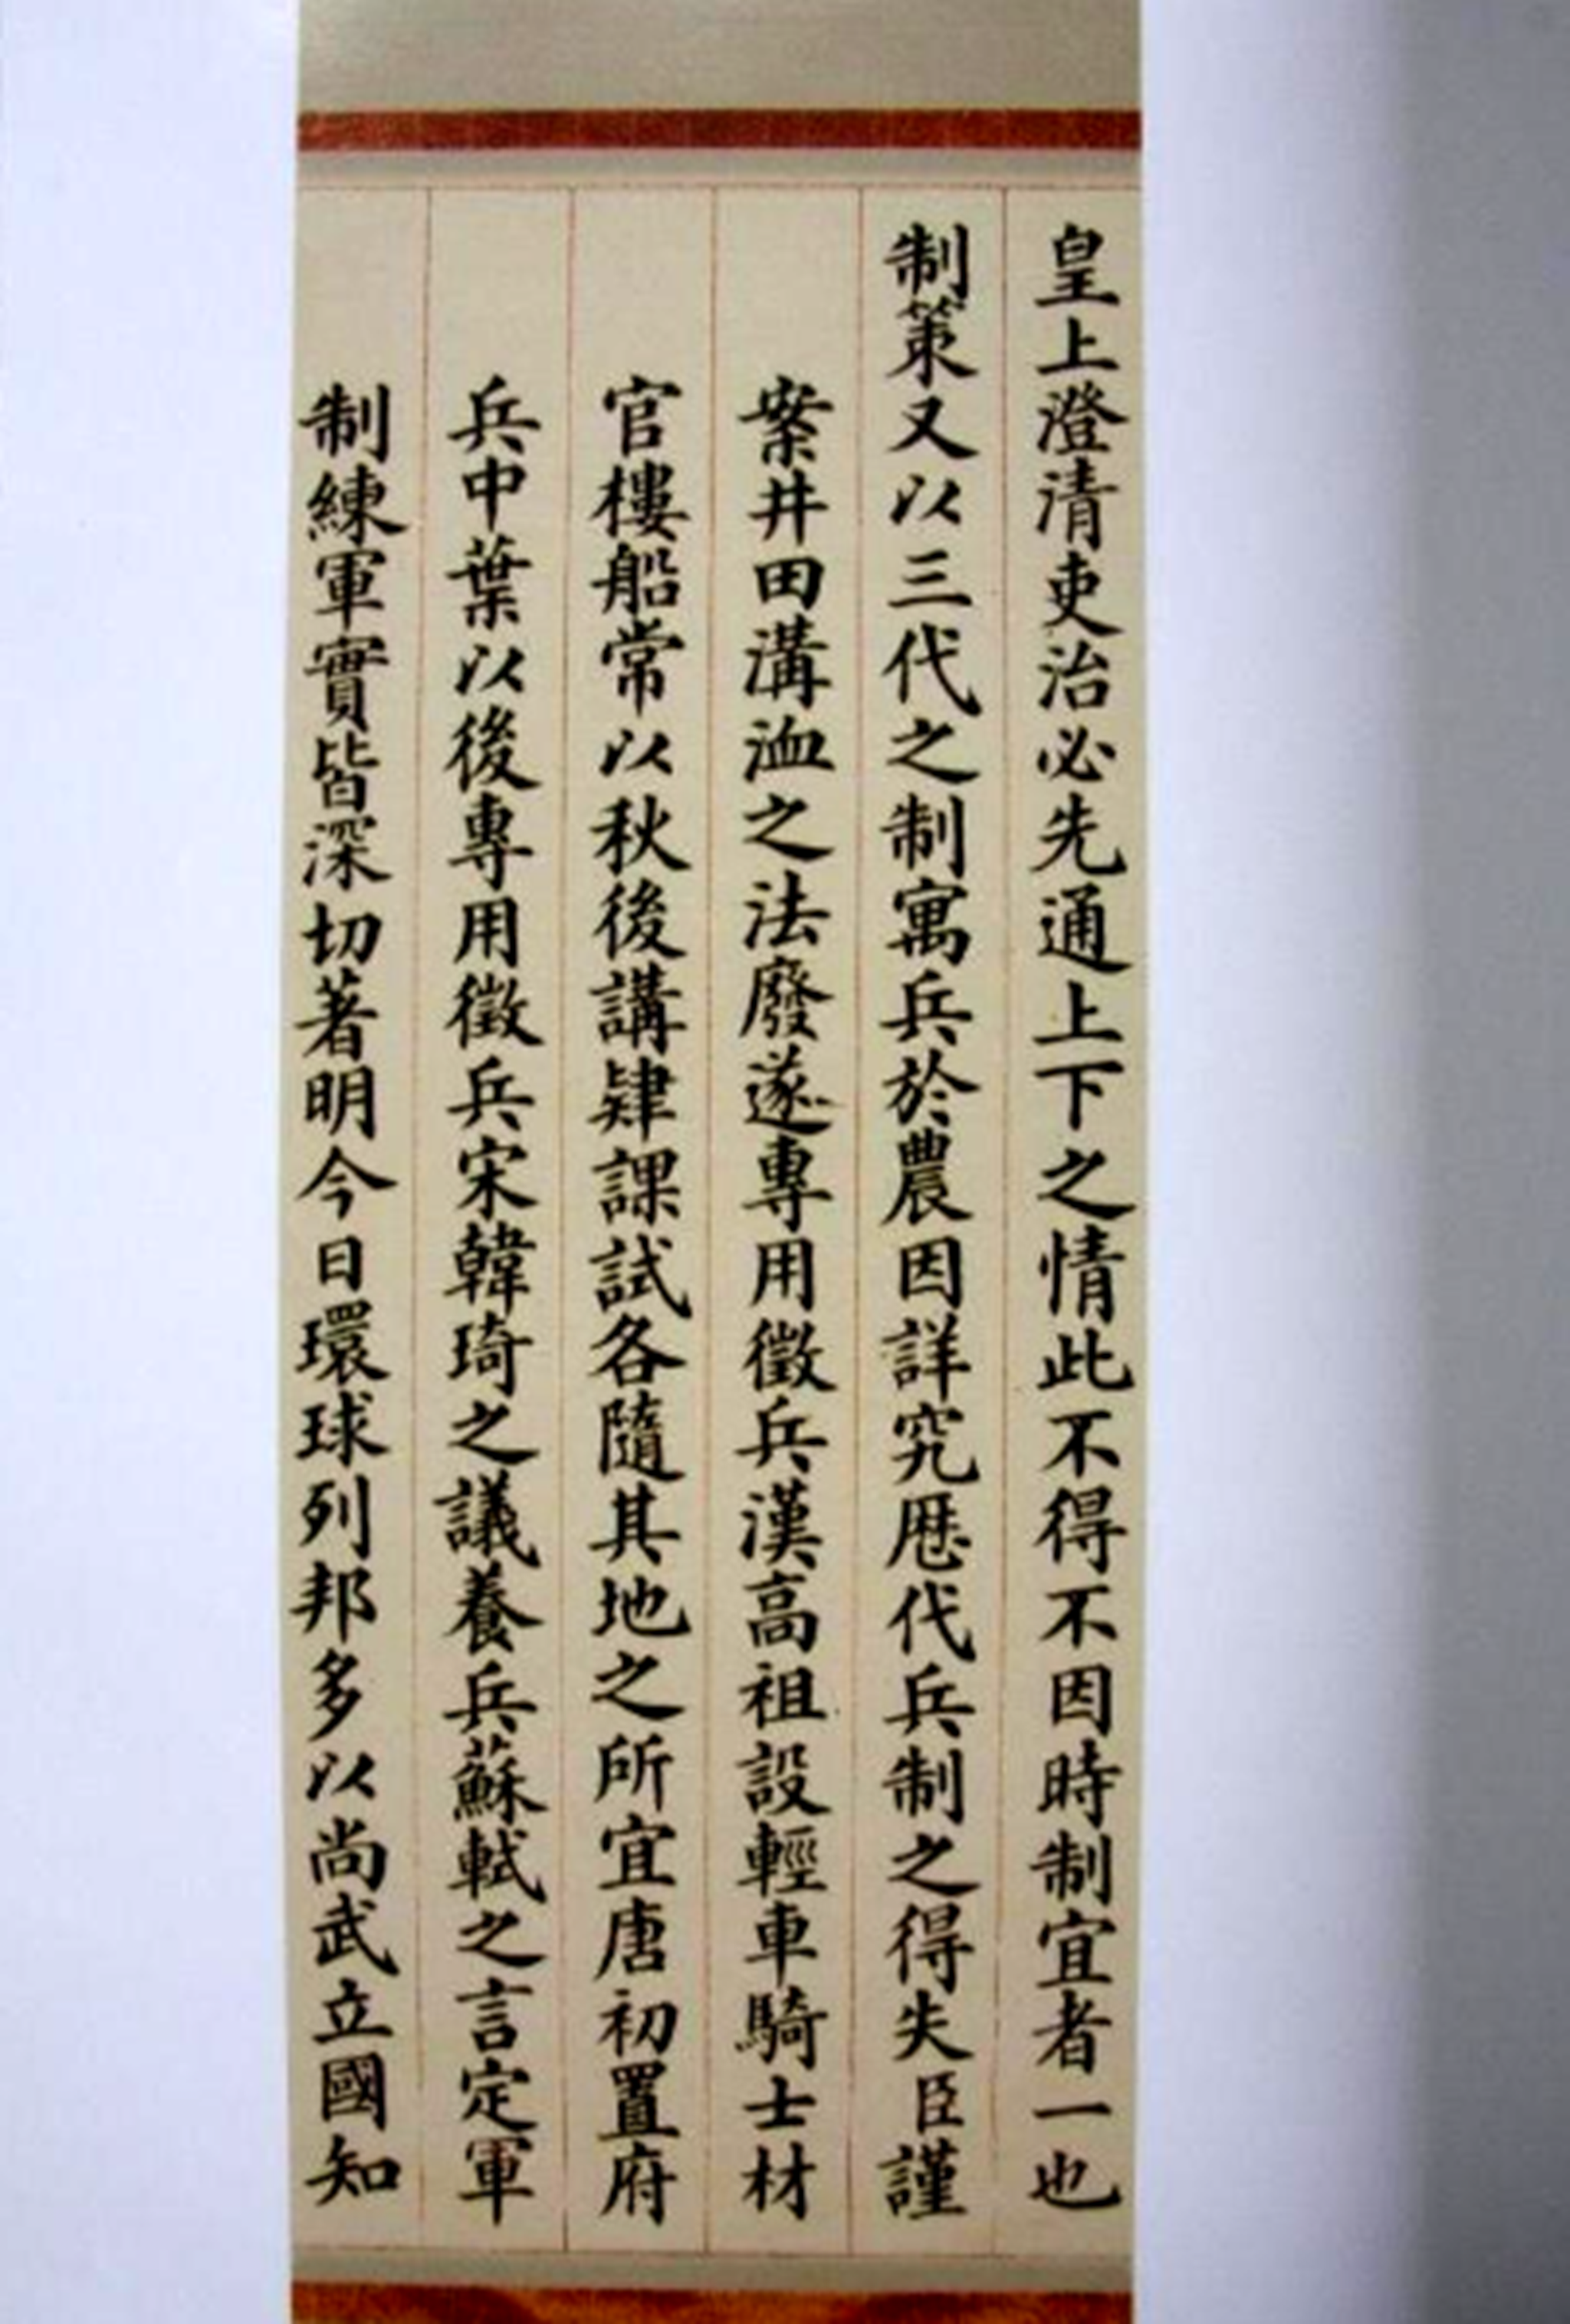 皇上澄清吏治必先通上下之情此不得不因時制宜者一也
制策又以三代之制寓兵於農因詳究歷代兵制之得失臣謹
案井田溝洫之法廢遂專用徵兵漢高祖設輕車騎士材
官樓船常以秋後講肄課試各隨其地之所宜唐初置府
兵中葉以後專用徵兵宋韓琦之議養兵蘇軾之言定軍
制練軍實皆深切著明今日環球列邦多以尚武立國知